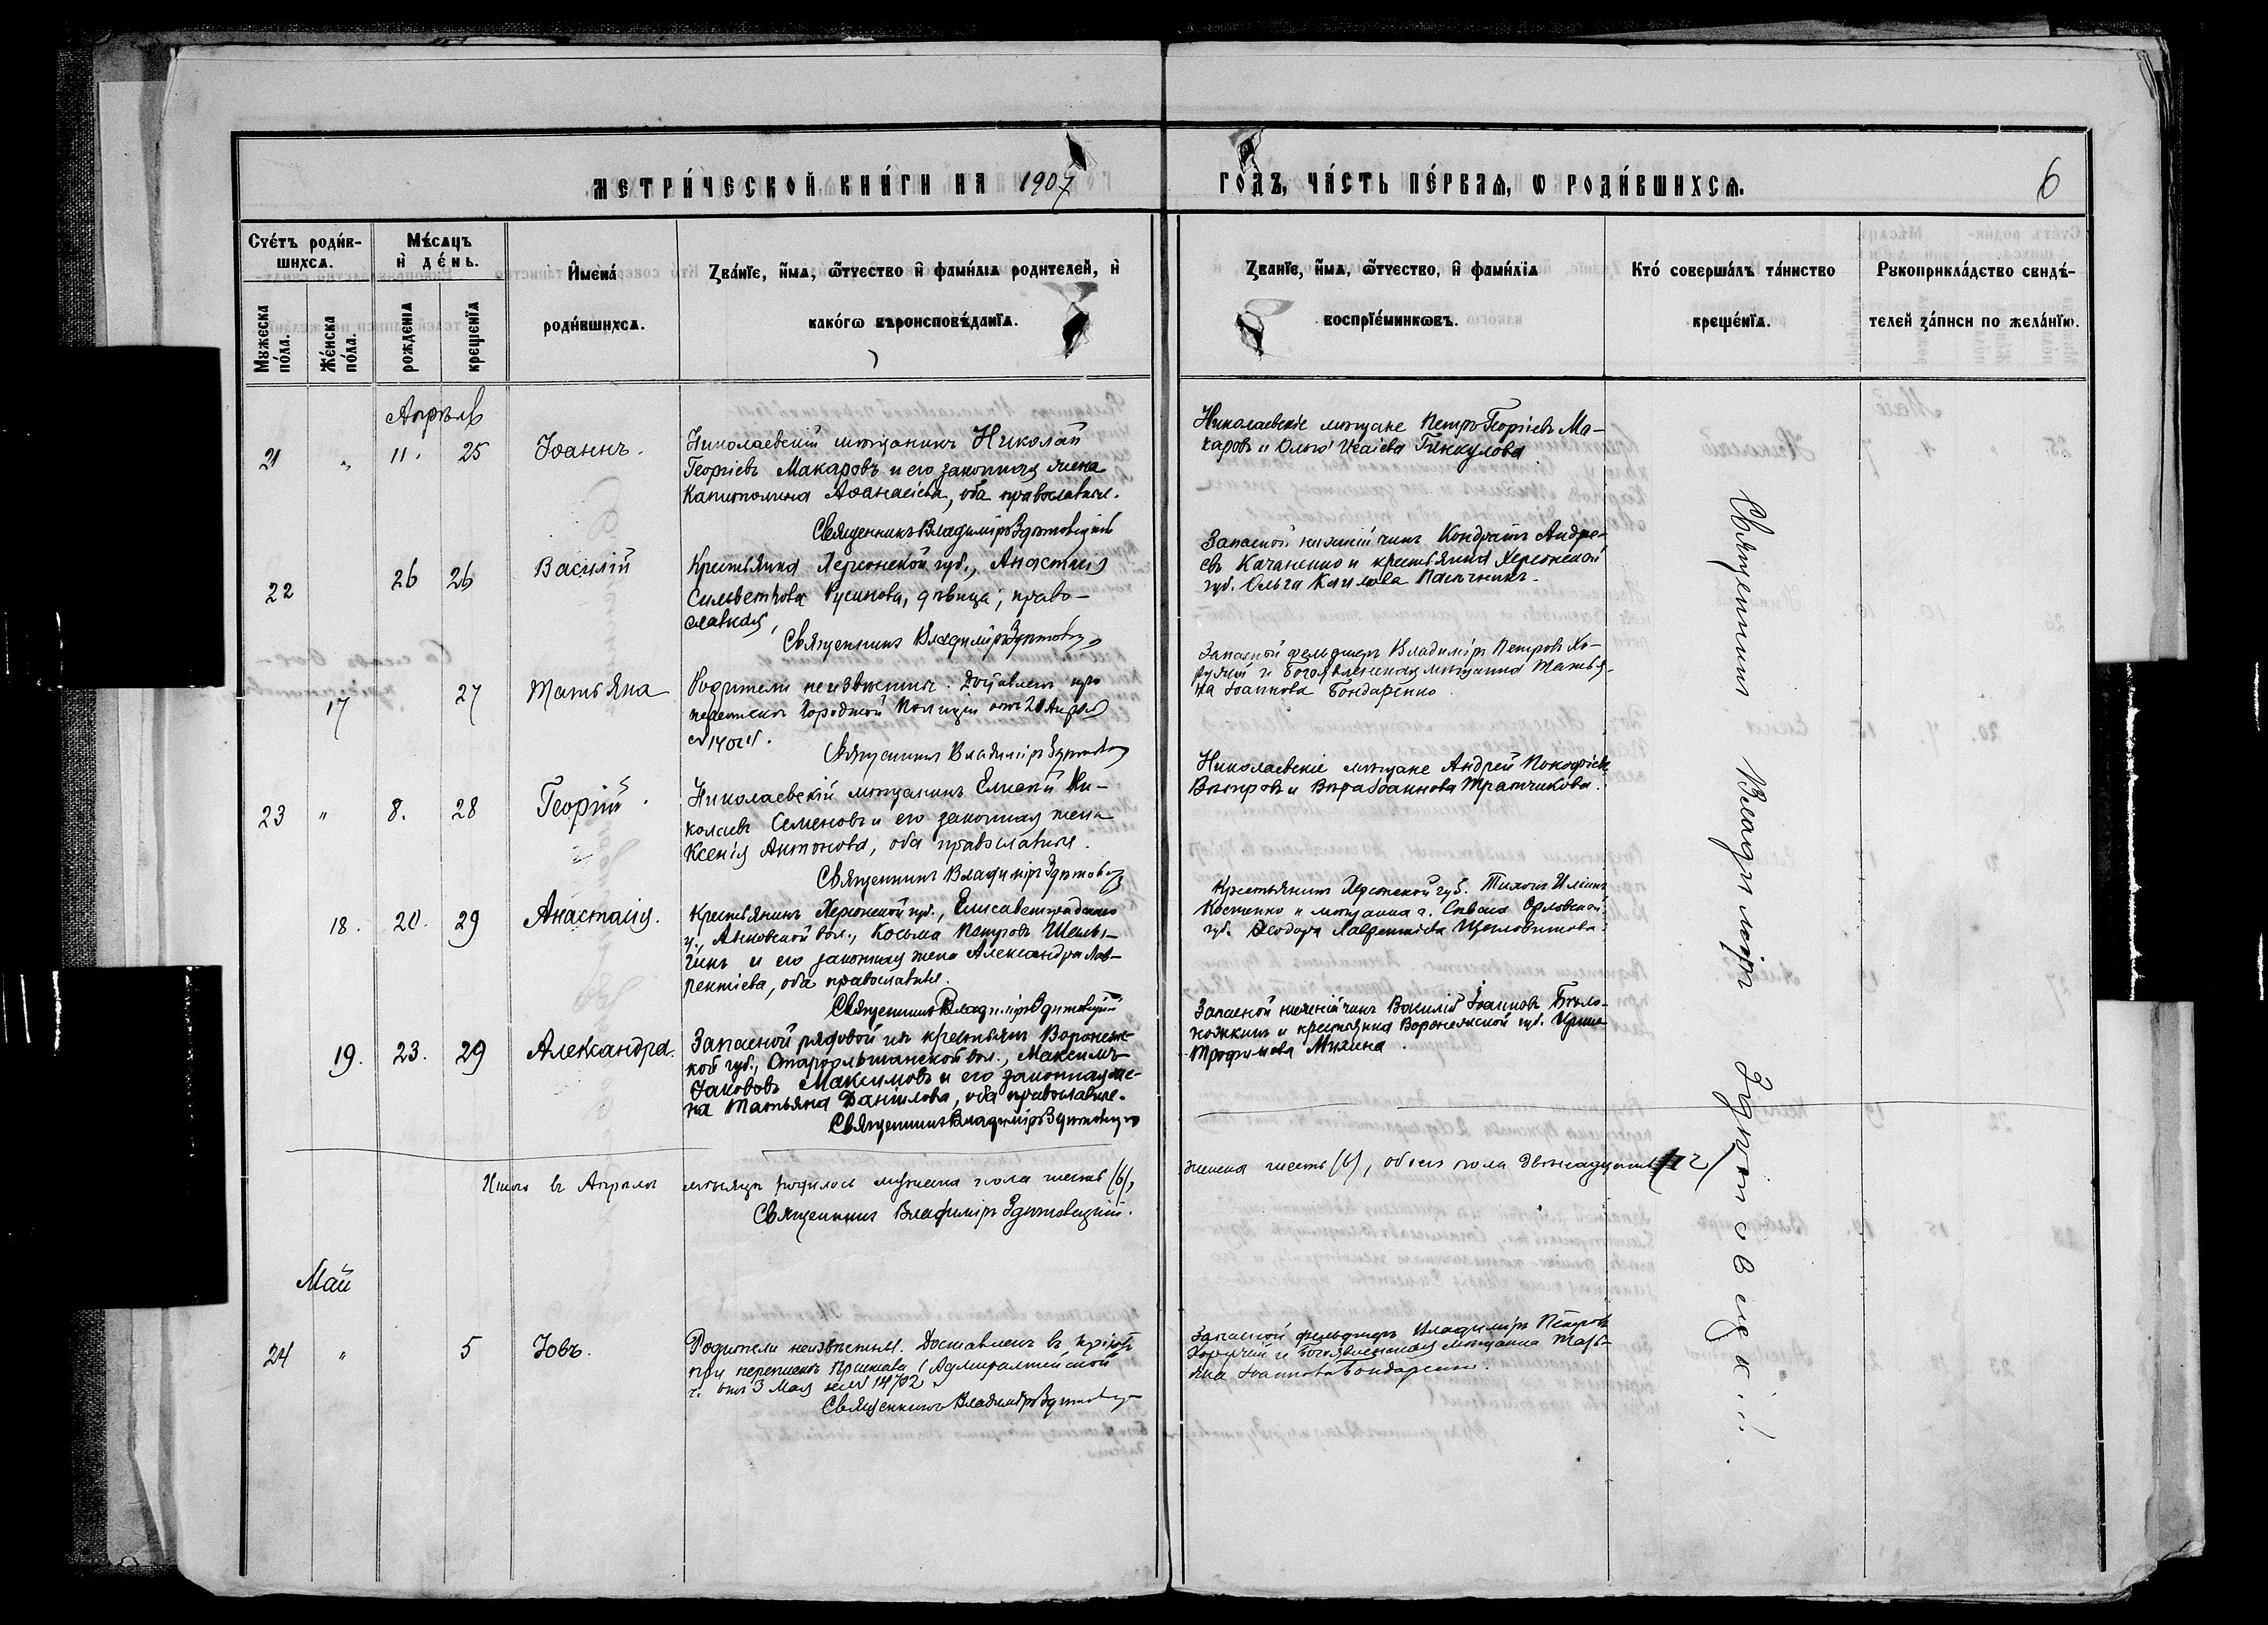 МЕТРИ́ЧЕСКОЙ КНИ́ГИ НА 1907
ГОДЪ, ЧА́СТЬ ПЕ́РВАѦ, Ѡ РОДИ́ВШИХСѦ.
6
Сче́тъ роди́в-
шихсѧ.
Мѣ́сѧцъ
и҆ де́нь.
Мꙋжеска по́ла.
Же́нска по́ла.
рожденїѧ
крещенїѧ
И҆мена́
роди́вшихсѧ.
Зва́нїе, и҆́мѧ, ѻ҆́тчество и҆ фами́лїѧ родителей, и҆
како́гѡ вѣроисповѣ́данїѧ.
Зва́нїе, и҆́мѧ, ѻ҆́тчество, и҆ фами́лїѧ
воспрїе́мникѡвъ.
Кто́ соверша́лъ та́инство
креще́нїѧ.
Рꙋкоприкла́дство свидѣ́-
телей за́писи по жела́нїю.
Апрѣль
21 " 11. 25 Іоаннъ.
Николаевскій мѣщанинъ Николай
Георгіевъ Макаровъ и его законная жена
Капитолина Аѳанасіева, оба православные.
Священникъ Владиміръ Здитовецкій
Николаевскіе мѣщане Петръ Георгіевъ Ма-
каровъ и Ольга Исаіева Гинкулова
22 26 26 Василій
Крестьянка Херсонской губ., Анастасія
Сильвестрова Русинова, дѣвица, право-
славная,
Священникъ Владиміръ Здитовец
Запасной нижній чинъ Кондратъ Андре-
евъ Качаненко и крестьянка Херсонской
губ. Ольга Пасѣчникъ.
17 27 Татьяна
Родители неизвѣстны. Доставлена при
перепискѣ Городской Полиціи отъ 21 Апрѣля
Священникъ Владиміръ Здитовец
Запасной фельдшеръ Владиміръ Петровъ Хо-
ружій и Богоявленская мѣщанка Татья-
на Іоаннова Бондаренко.
23 " 8. 28 Георгій.
Николаевскій мѣщанинъ Елисей Ни-
колаевъ Семеновъ и его законная жена
Ксенія Антонова, оба православные.
Священникъ Владиміръ Здитовец
Николаевскіе мѣщане Андрей
и
18. 20. 29 Анастасія.
Крестьянинъ Херсонской губ., Елисаветградскаго
у., вол., Косьма Петровъ
и его законная жена Александра Лав-
рентіева, оба православные.
Священникъ Владиміръ Здитовецкій
Крестьянинъ Херсонской губ. Тихонъ Иліинъ
Костенко и мѣщанка г. Сѣвска Орловской
губ. Ѳеодора Лаврентіева Щегловитова.
19. 23. 29 Александра.
Запасной рядовой изъ крестьянъ Воронеж-
кой губ., Староольшанской вол., Максимъ
Іакововъ Максимовъ и его законная же-
на Татьяна Даніилова, оба православные.
Священникъ Владиміръ Здитовецк
Запасной нижній чинъ Василій Іоанновъ Бѣло-
ножкинъ и крестьянка Воронежской губ. Ирина
Трофимова Михина.
Итого въ Апрѣлѣ мѣсяцѣ родилось мужеска пола шесть (6),
женска шесть (6), обоего пола двѣнадцать (12)
Священникъ Владиміръ Здитовецкій.
Май
24 " 5 Іовъ.
Родители неизвѣстны. Доставленъ въ пріютъ
при перепискѣ Пристава Адмиралтейской
ч. отъ 3 Мая за № 14702
Священникъ Владиміръ Здитовец
Запасной фельдшеръ Владиміръ Петровъ
Хоружій и Богоявленская мѣщанка Тать-
яна Іоаннова Бондаренко.
Священникъ Владиміръ Здитовецкій.